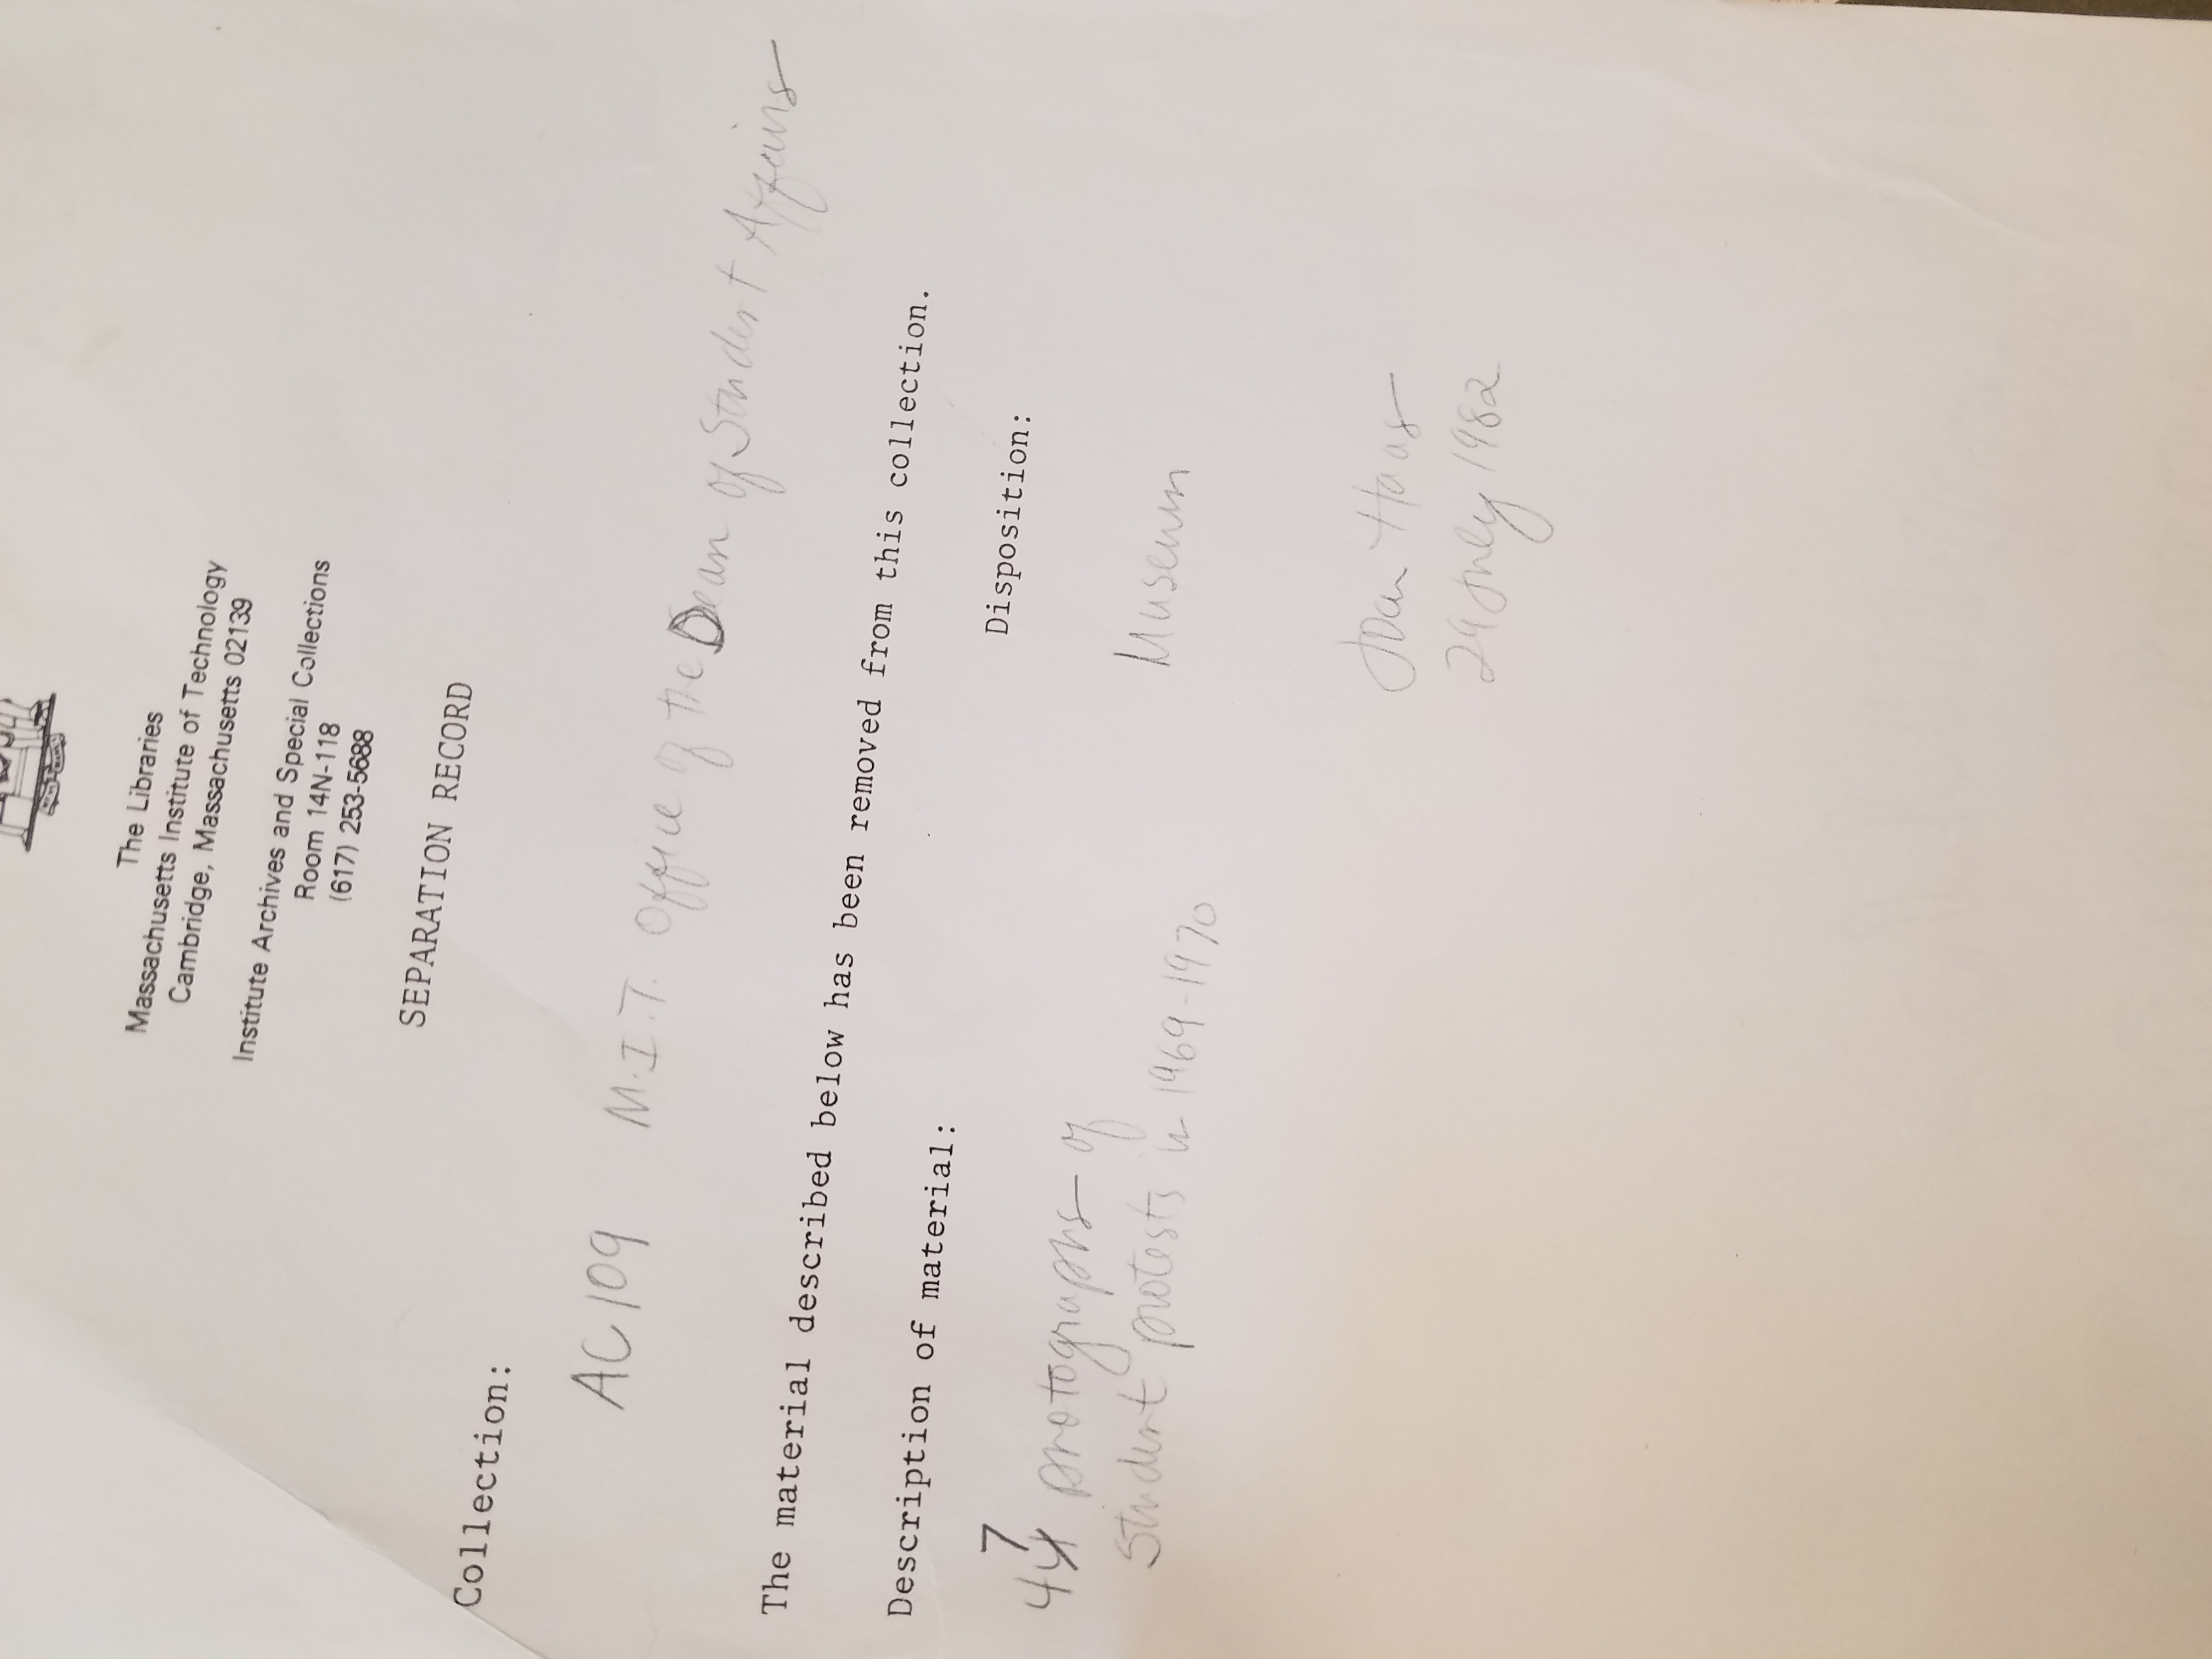 The Libraries
Massachusetts Institute of Technology
Cambridge, Massachusetts 02139
Institute Archives and Special Collections
Room 14N-118
(617) 253-5688
SEPARATION RECORD
Collection:
AC 109 M.I.T. Office of the Dean of Student Affairs
The material described below has been removed from this collection.
Description of material:
Disposition:
7
44 photographs of
student protests in 1969-1970
Museum
Joan Haas
29 July 1982